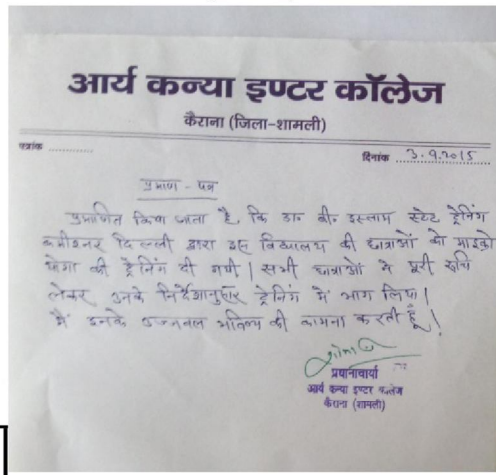 आर्य कन्या इण्टर कॉलेज
कैराना (जिला-शामली)
पत्रांक ............
दिनांक 3.9.2015
प्रमाण - पत्र
प्रमाणित किया जाता है, कि डा॰ बी॰ इस्लाम स्टेट ट्रेनिंग
कमीश्नर दिल्ली द्वारा इस विद्यालय की छात्राओं को माइक्रो
योगा की ट्रेनिंग दी गयी। सभी छात्राओं ने पूरी रूचि
लेकर उनके निर्देशानुसार ट्रेनिंग में भाग लिया।
मैं इनके उज्जवल भविष्य की कामना करती हूँ!
प्रधानाचार्या
आर्य कन्या इण्टर कालेज
कैराना (शामली)